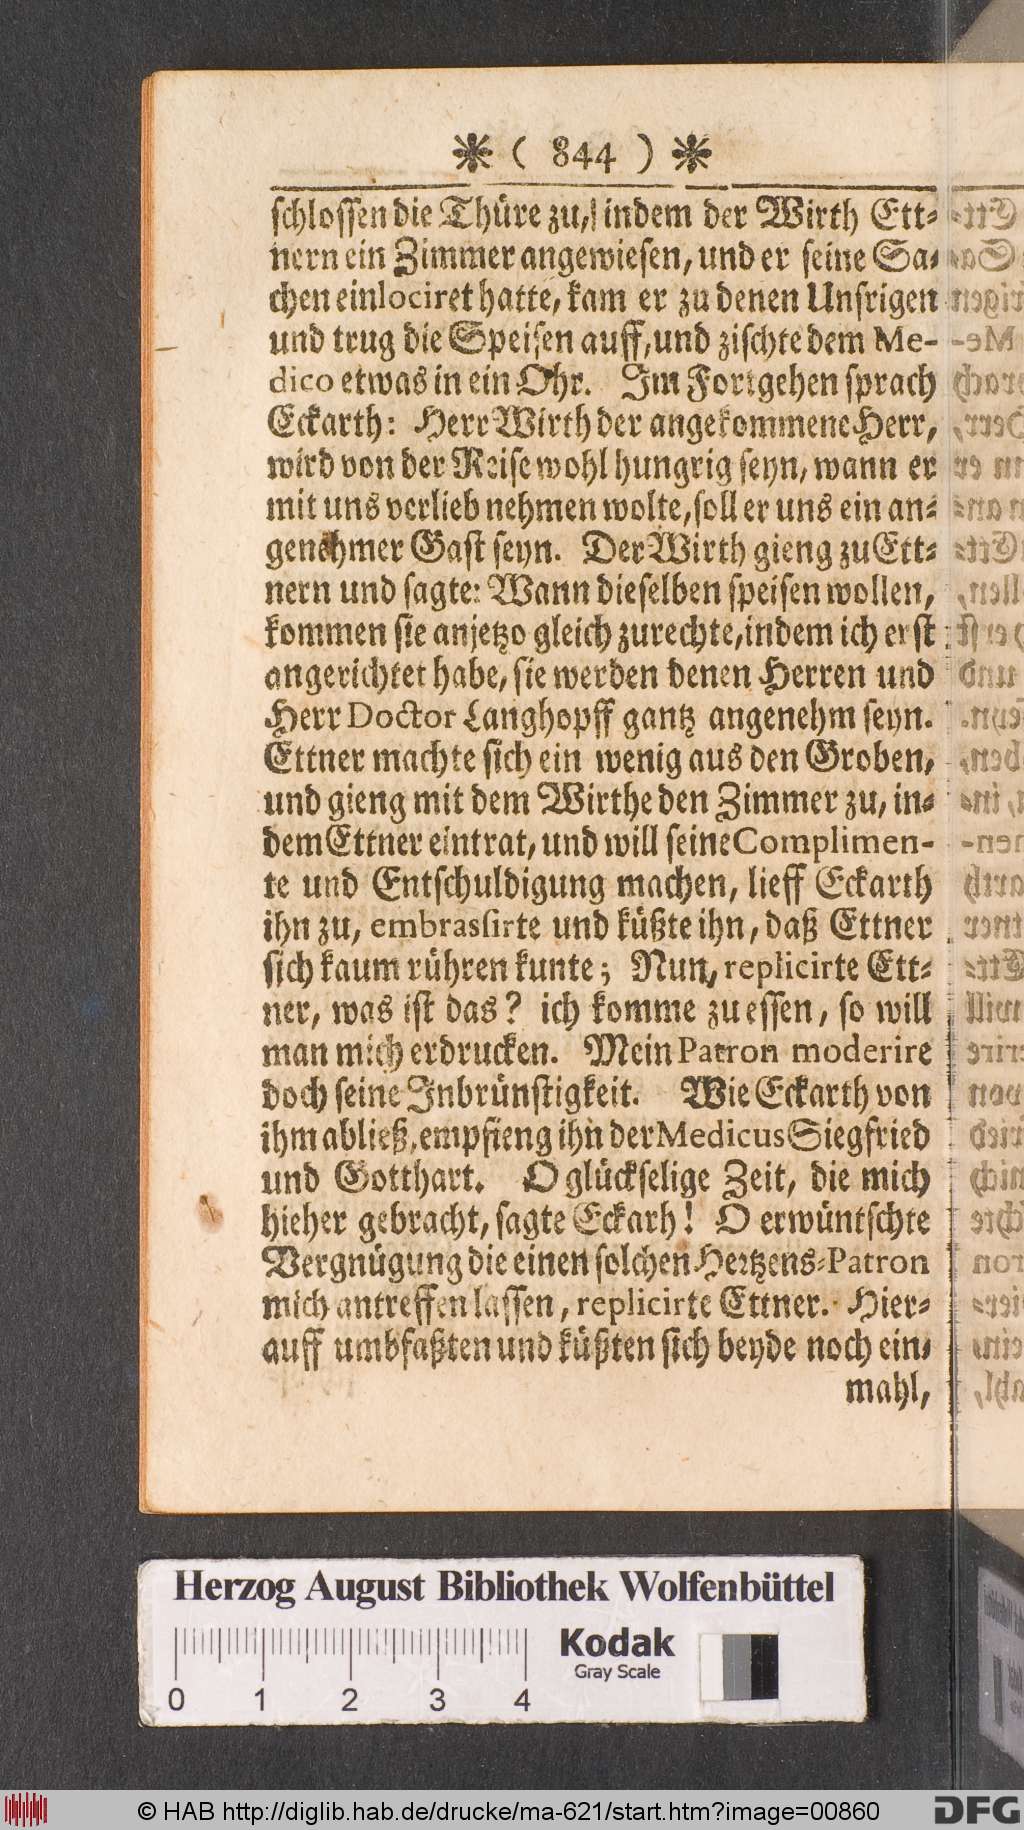 ❋ ( 844 ) ❋
schlossen die Thüre zu, indem der Wirth Ett-
nern ein Zimmer angewiesen, und er seine Sa-
chen einlociret hatte, kam er zu denen Unsrigen
und trug die Speisen auff, und zischte dem Me-
dico etwas in ein Ohr. Im Fortgehen sprach
Eckarth: Herr Wirth der angekommene Herr,
wird von der Reise wohl hungrig seyn, wann er
mit uns verlieb nehmen wolte, soll er uns ein an-
genehmer Gast seyn. Der Wirth gieng zu Ett-
nern und sagte: Wann dieselben speisen wollen,
kommen sie anjetzo gleich zurechte, indem ich erst
angerichtet habe, sie werden denen Herren und
Herr Doctor Langhopff gantz angenehm seyn.
Ettner machte sich ein wenig aus den Groben,
und gieng mit dem Wirthe den Zimmer zu, in-
dem Ettner eintrat, und will seine Complimen-
te und Entschuldigung machen, lieff Eckarth
ihn zu, embrassirte und küßte ihn, daß Ettner
sich kaum rühren kunte; Nun, replicirte Ett-
ner, was ist das? ich komme zu essen, so will
man mich erdrucken. Mein Patron moderire
doch seine Inbrünstigkeit. Wie Eckarth von
ihm abließ, empfieng ihn der Medicus Siegfried
und Gotthart. O glückselige Zeit, die mich
hieher gebracht, sagte Eckarh! O erwüntschte
Vergnügung die einen solchen Hertzens-Patron
mich antreffen lassen, replicirte Ettner. Hier-
auff umbfaßten und küßten sich beyde noch ein-
mahl,
Herzog August Bibliothek Wolfenbüttel
Kodak
Gray Scale
0 1 2 3 4
© HAB http://diglib.hab.de/drucke/ma-621/start.htm?image=00860
DFG